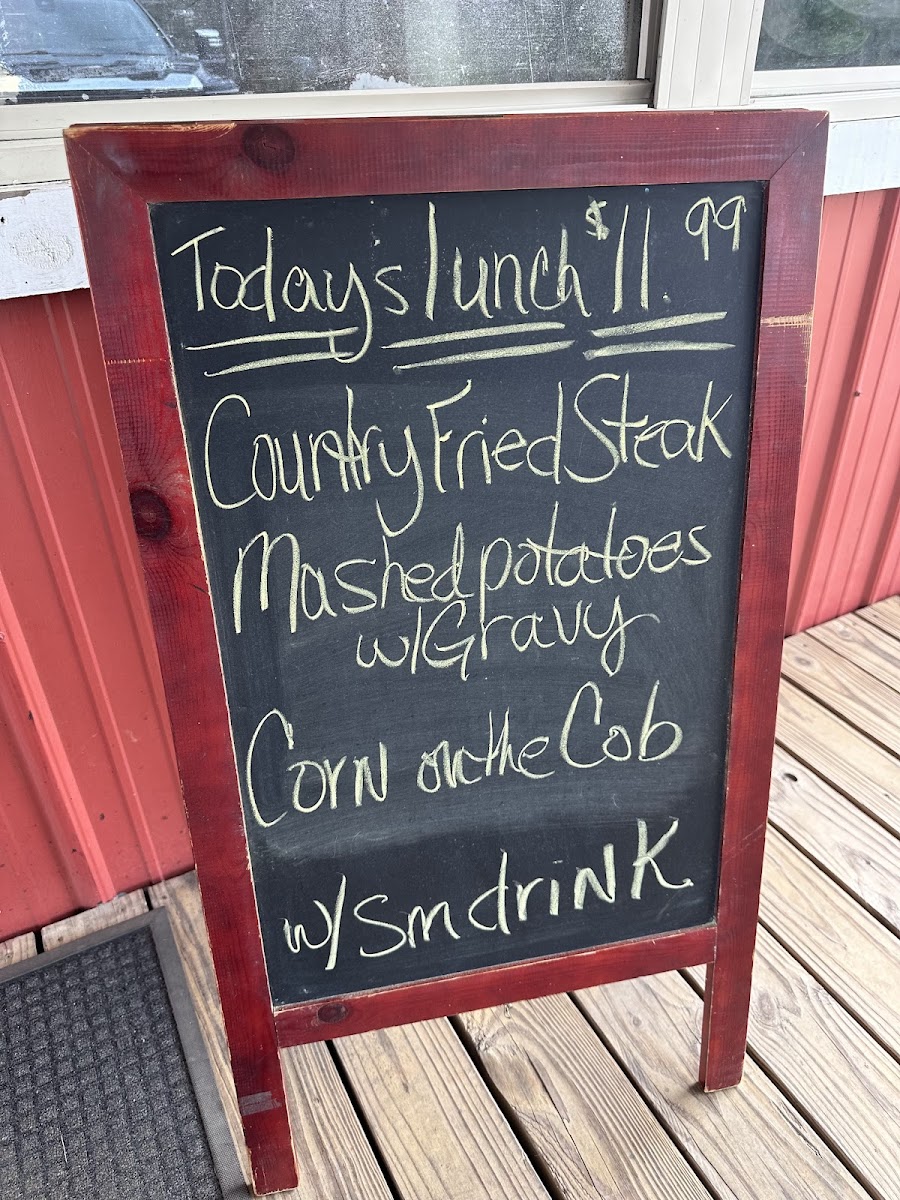 Today's lunch $11.99
Country Fried Steak
Mashed potatoes
w/Gravy
Corn on the Cob
w/ sm drink